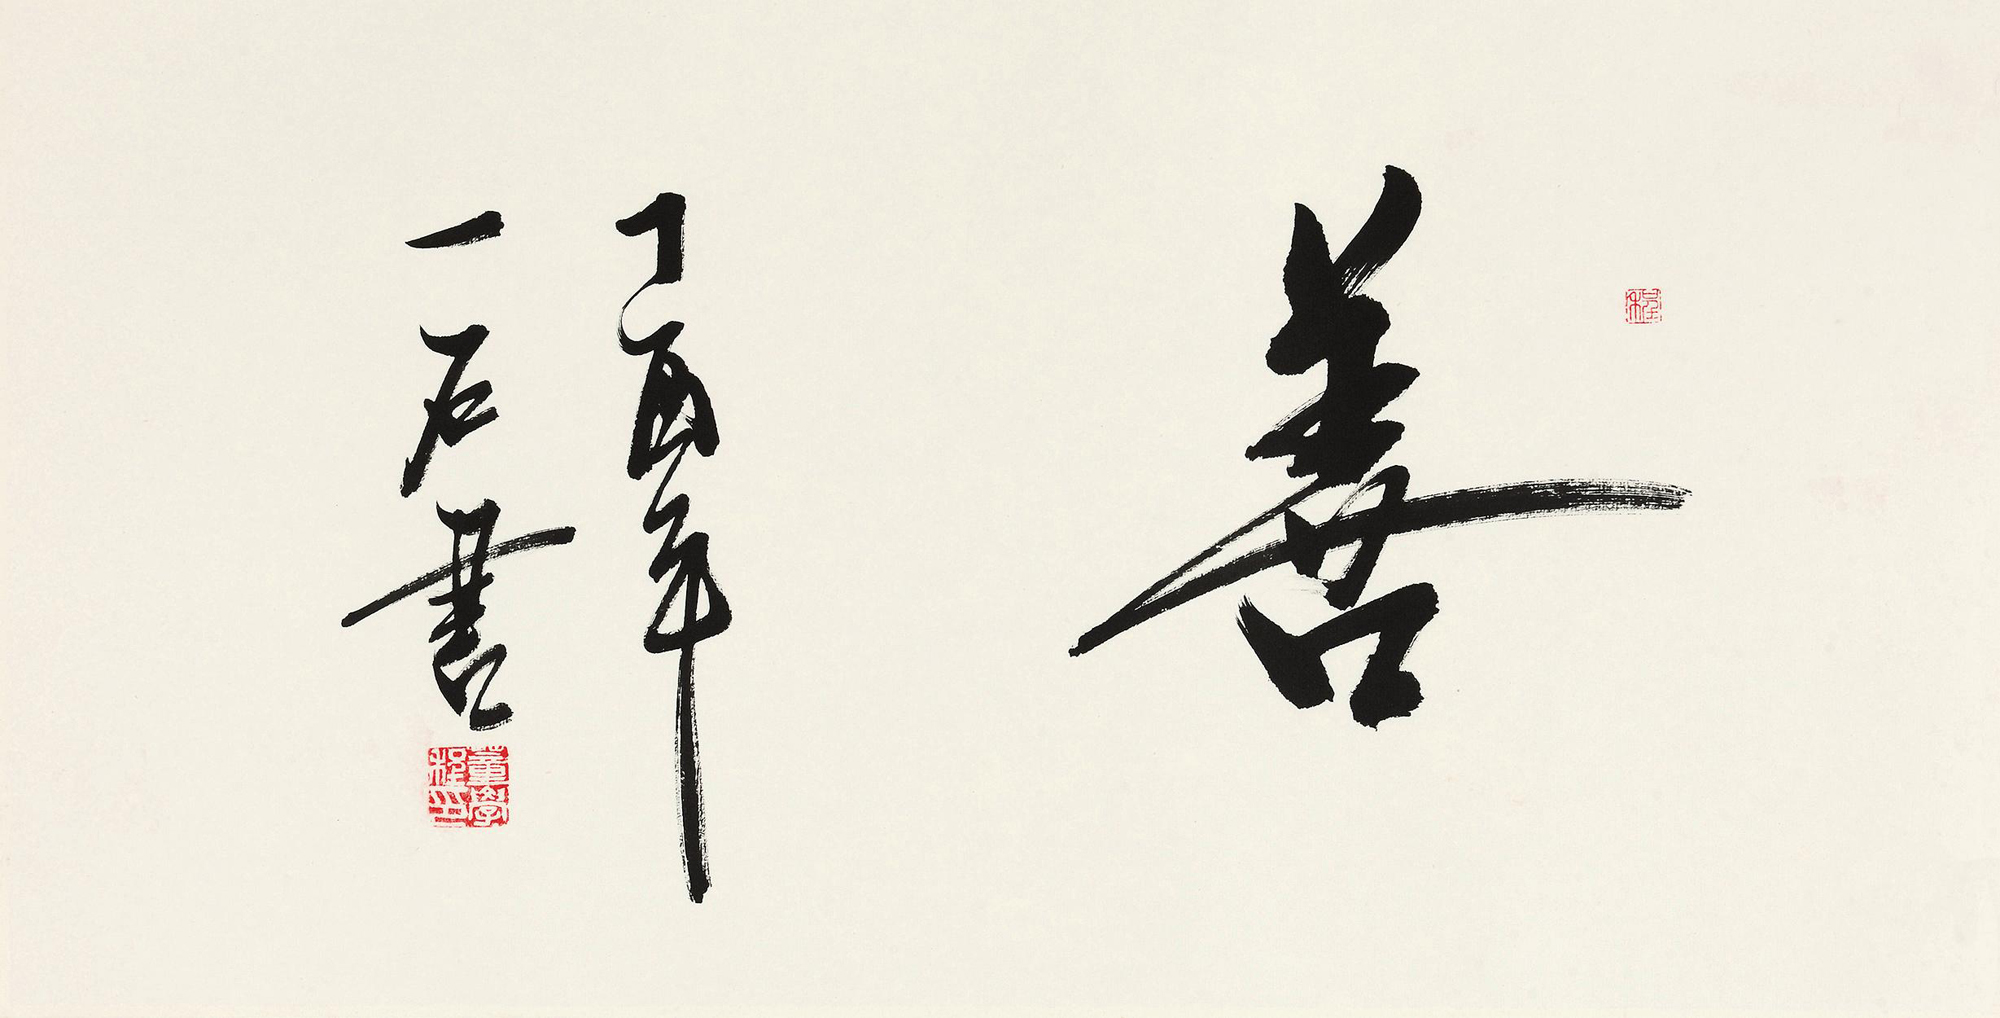 善
丁酉年
一石書
程
董學程印